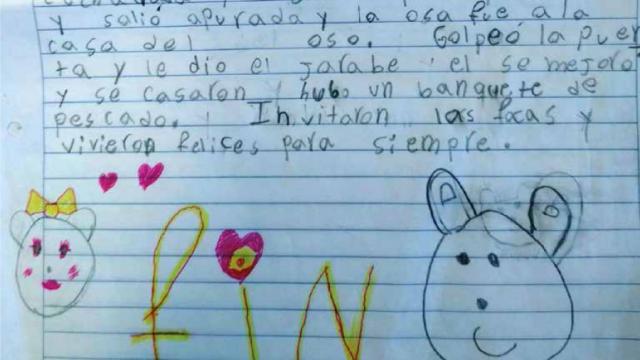 y salió apurada y la osa fue a la
casa del oso. Golpeó la puer
ta y le dio el jarabe, el se mejoró
y se casaron, hubo un banquete de
pescado. Invitaron las focas y
vivieron felices para siempre.
fiN